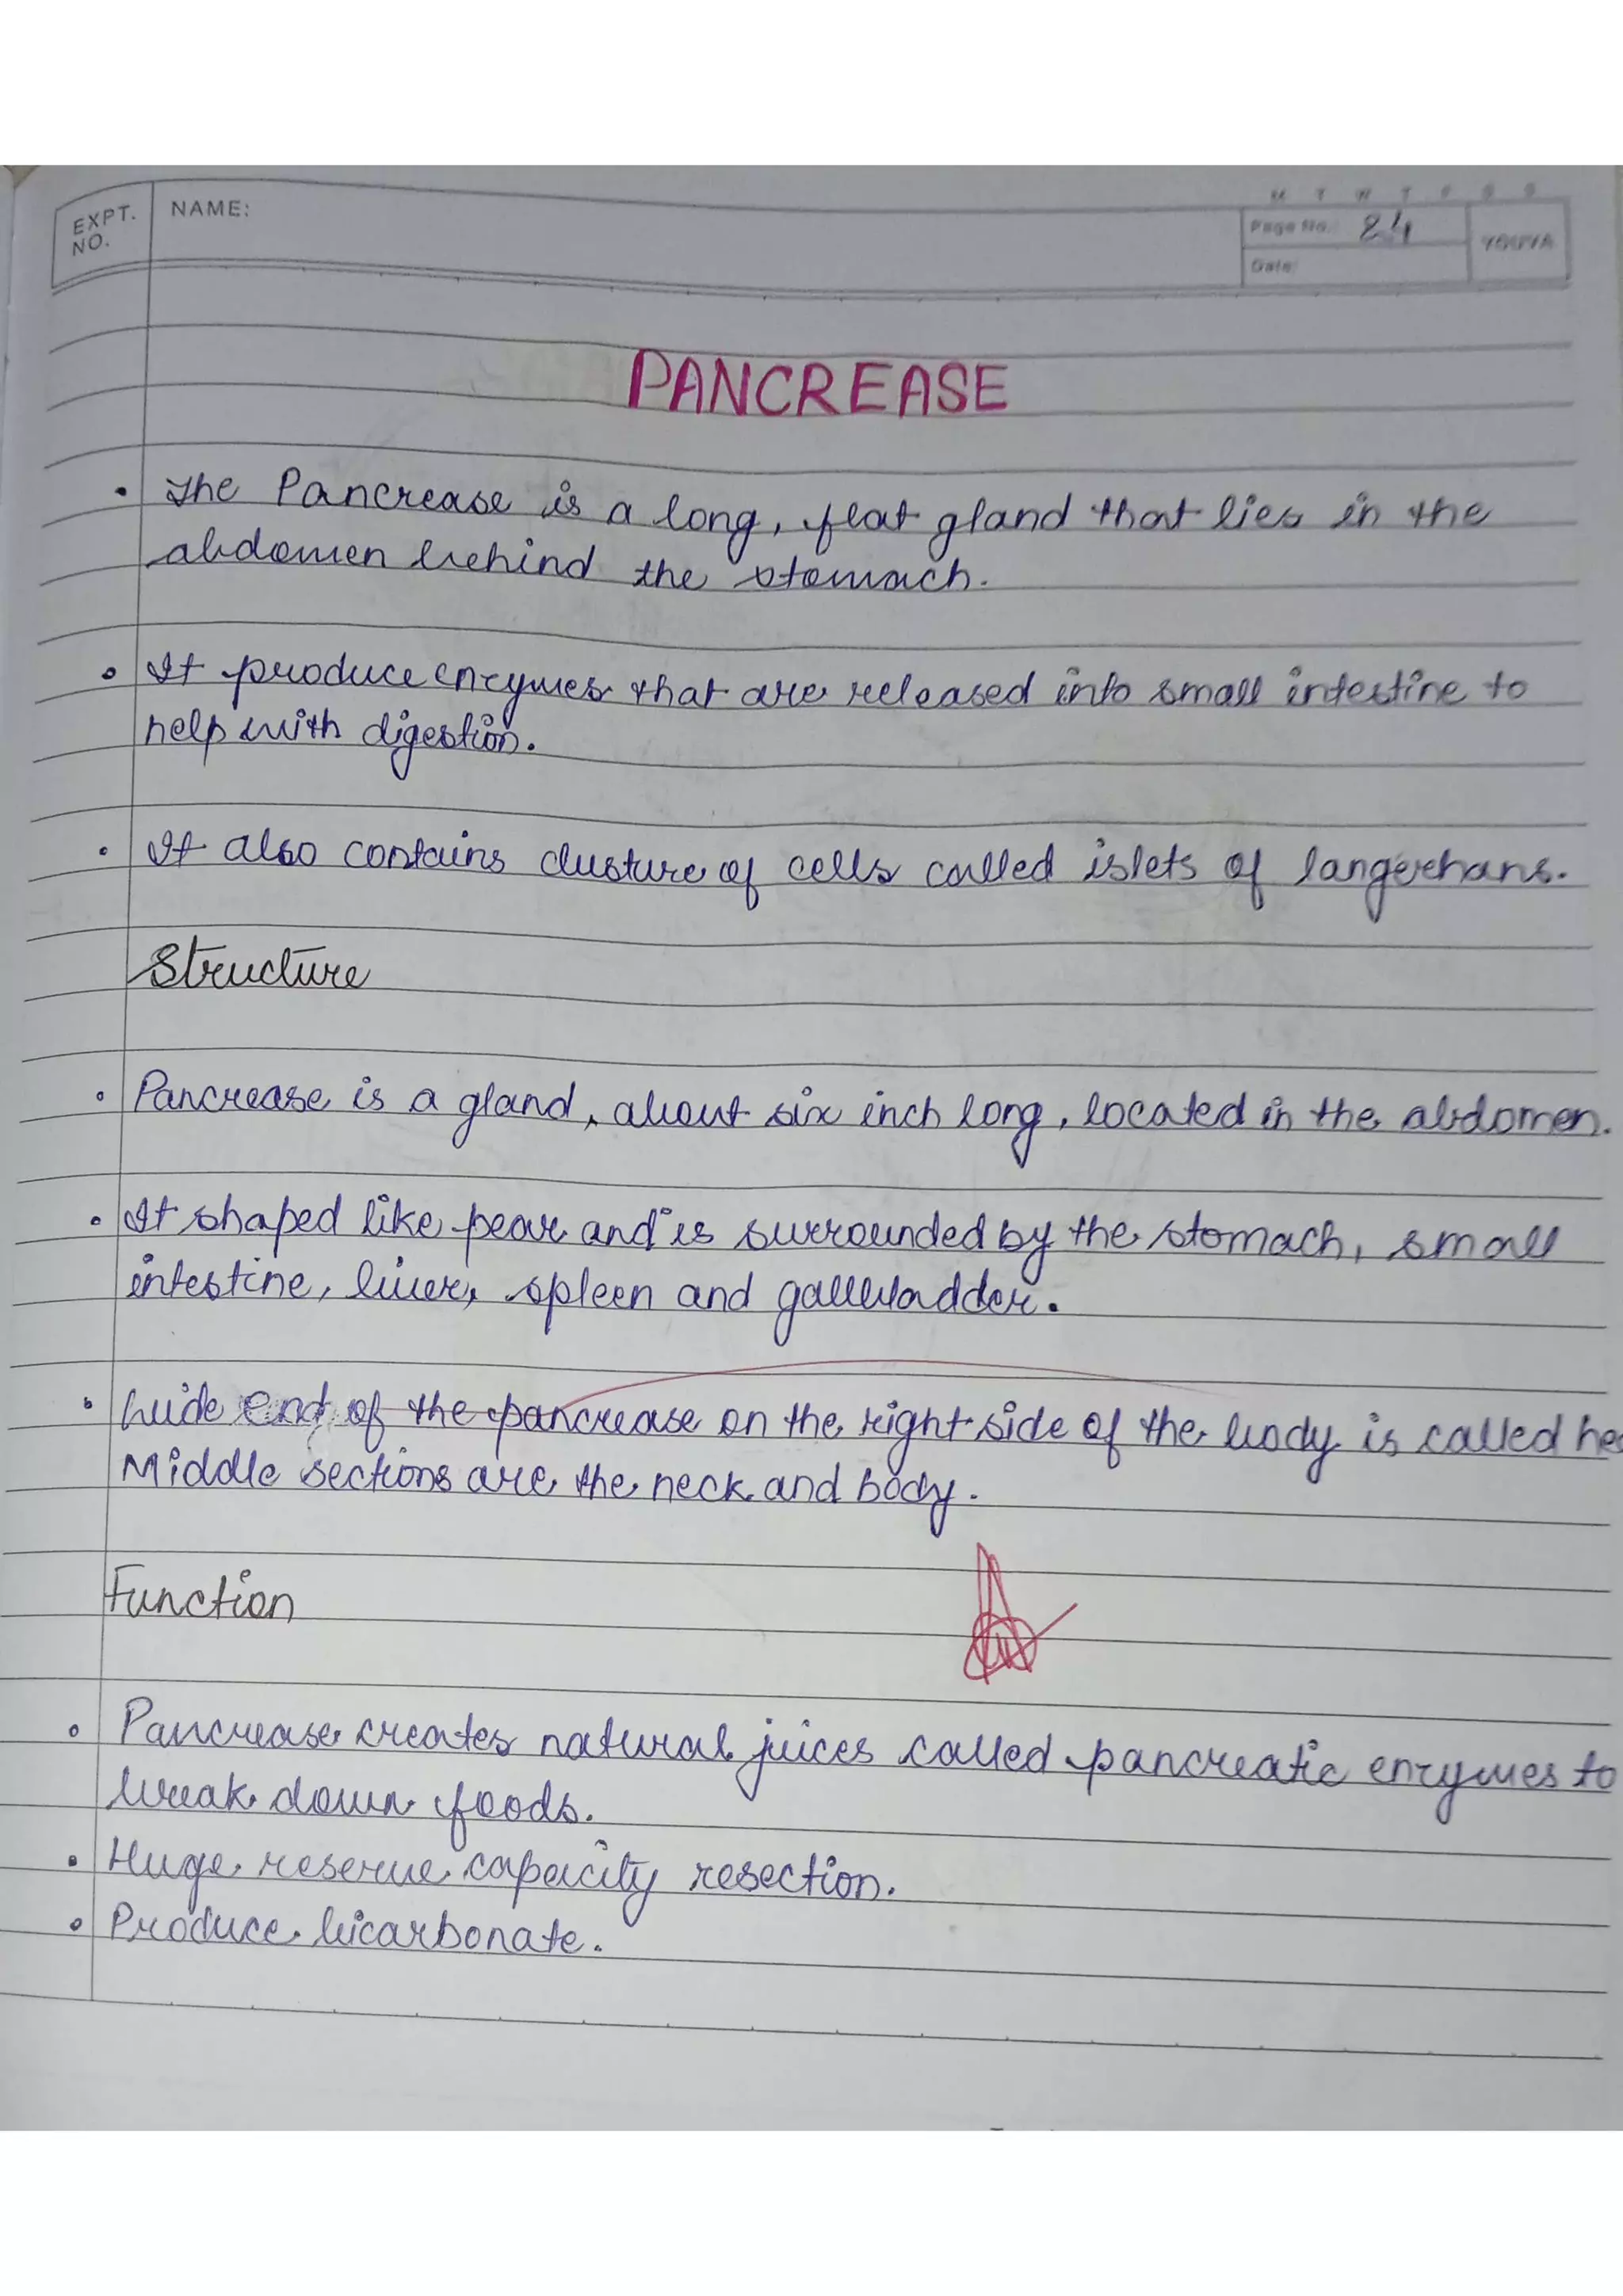 M T W T F S S
EXPT. NO.
NAME:
Page No. 24
YOUVA
Date:
PANCREASE
• The Pancrease is a long, flat gland that lies in the
abdomen behind the stomach.
• It produce enzymes that are released into small intestine to
help with digestion.
• It also contains clusture of cells called islets of langerhans.
Structure
• Pancrease is a gland, about six inch long, located in the abdomen.
• It shaped like pear and is surrounded by the stomach, small
intestine, liver, spleen and gallbladder.
• wide end of the pancrease on the right side of the body is called hea
Middle sections are the neck and body.
Function
• Pancrease creates natural juices called pancreatic enzymes to
break down foods.
• Huge reserve capacity resection.
• Produce bicarbonate.